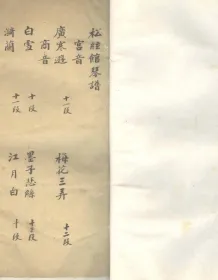 松絃館琴譜
宮音
廣寒遊 十一段 梅花三弄 十二段
商音
白雪 十段 墨子悲絲 十三段
漪蘭 十一段 江月白 十段